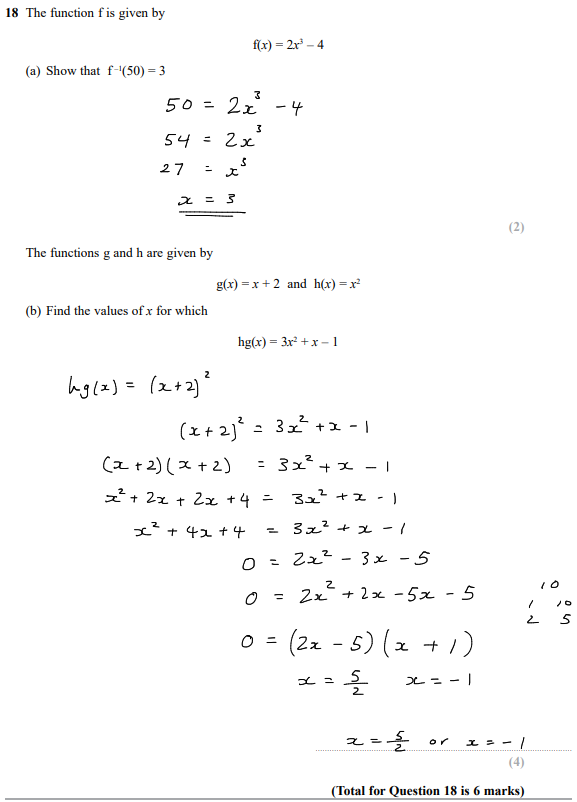 18 The function f is given by
f(x) = 2x³ – 4
(a) Show that f⁻¹(50) = 3
50 = 2x³ - 4
54 = 2x³
27 = x³
x = 3
(2)
The functions g and h are given by
g(x) = x + 2 and h(x) = x²
(b) Find the values of x for which
hg(x) = 3x² + x – 1
hg(x) = (x+2)²
(x+2)² = 3x² + x - 1
(x+2)(x+2) = 3x² + x - 1
x² + 2x + 2x + 4 = 3x² + x - 1
x² + 4x + 4 = 3x² + x - 1
0 = 2x² - 3x - 5
0 = 2x² + 2x - 5x - 5
10
1 10
2 5
0 = (2x - 5)(x + 1)
x = 5/2 x = -1
x = 5/2 or x = -1
(4)
(Total for Question 18 is 6 marks)